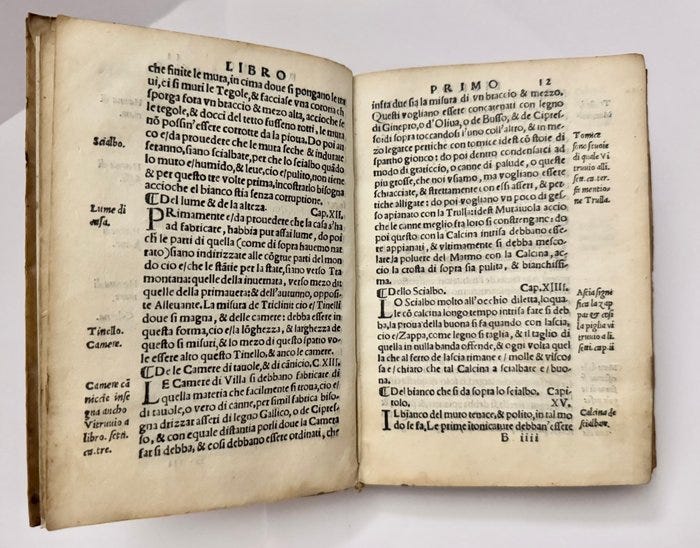 LIBRO
che finite le mura, in cima doue si pongano le tra
ui, ei si muri le Tegole, & facciase vna corona ch
sporga fora vn braccio & mezo alta, accioche se
le tegole, & docci del tetto fusseno rotti, le mura
nō possin'essere corrotte da la pioua. Do poi an
co e/da prouedere che le mura seche & indurate
seranno, siano scialbate, per che lo scialbo quādo
lo muro e/humido, & leue, cio e/pulito, non tiene
& per questo tre volte prima, incostrarlo bisogna
accioche el bianco stia senza corruptione.
Scialbo.
Del lume & de la alteza. Cap. XII.
PRimamente e/da prouedere che la casa s'ha
ad fabricare, habbia pur assai lume, do poi
ch le parti di quella (come di sopra hauemo nar
rato)siano indirizzate alle cōgrue parti del mon
do cio e/che le stātie per la state, siano verso Tra
montana: quelle della inuernata, verso mezo di:
quelle della primauera: & dell'autunno, opposi-
te Alleuante. La misura de Triclinii cio e/Tinelli
doue si magna, & delle camere: debba essere in
questa forma, cio e/la lōgheza, & larghezza de
questo si misuri, & lo mezo di questo spatio vo-
le essere alto questo Tinello, & anco le camere.
Lume di
casa.
Tinello.
Camere.
De le Camere di tauole, & di cānicio, C. XIII.
LE Camere di Villa si debbano fabricare di
quella materia che facilmente si troua, cio e/
di tauole, o vero di canne, per simil fabrica biso-
gna drizzar asseti di legno Gallico, o de Cipres-
so, & con equale distantia porli doue la Camera
far si debba, & cosi debbano essere ordinati, che
Camere cā
niccie inse
gna ancho
Vitruuio a
libro. setti.
ca. tre.
PRIMO 12
infra due sia la misura di vn braccio & mezzo.
Questi vogliano essere concatenati con legno
di Ginepro, o d'Oliua, o de Busso, & de Cipres-
so si di sopra toccandosi l'uno coll'altro, & in me-
zo legare pertiche con tomice idest cō stoie de
spartho gionco: do poi dentro condensarci ad
modo di graticcio, o canne di palude, o queste
piu grosse, che noi vsamo, ma vogliano essere
schiacciate, & strettamente con essi asseri, & per
tiche alligate: do poi vogliano vn poco di ges-
so apianato con la Trulla: idest Muratuola accio
che le canne meglio fra loro si constrengano: do
poi questo con la Calcina intrisa debbano esse-
re appianati, & vltimamente si debba mesco-
lare, la poluere del Marmo con la Calcina, ac-
cio la crosta di sopra sia pulita, & bianchissi-
ma.
Tomice
sono
di quale Vi
truuio alli.
setti. ca. ter.
fa mentio-
ne Trulla.
Dello Scialbo. Cap. XIIII.
LO Scialbo molto all'occhio diletta, lo qua-
le cō calcina longo tempo intrisa fare si deb
ba, la proua della buona si fa quando con lascia,
cio e/Zappa, come legno si taglia, & il taglio di
quella in nulla banda offende, & ogni volta quel
la che al ferro de lascia rimane e/molle & viscosa
fa e/chiaro che tal Calcina a scialbare e/buo-
na.
Ascia signi
fica la zap
pa: & cosi
la piglia vi
truuio alli.
setti. cap. ii
Del bianco che si da sopra lo scialbo. Capi-
tolo. XV.
IL bianco del muro tenace, & polito, in tal mo
do se fa, Le prime itonicature debban'essere
Calcina de
scialbar.
B iiii